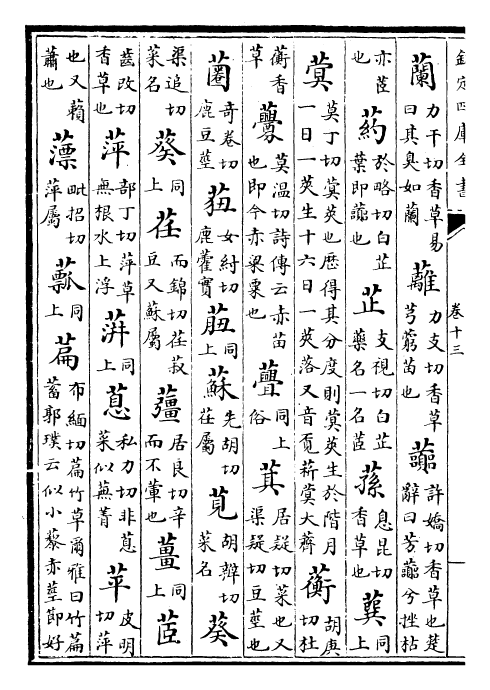 欽定四庫全書
卷十三
蘭力干切香草易曰其臭如蘭蘺力支切香草芎藭苗也虈許嬌切香草也楚辭曰芳虈兮挫枯
亦茝也葯於略切白芷葉即虈也芷支視切白芷藥名一名茝蓀息昆切香草也同上
蓂莫丁切蓂莢也厯得其分度則蓂莢生於階月一日一莢生十六日一莢落又音覓菥蓂大薺蘅胡庚切杜
蘅香草虋莫温切詩傳云赤苗也即今赤粱粟也同上俗萁居疑切菜也又渠疑切豆莖也
奇卷切鹿豆莖莥女紂切鹿藿實同上蘇先胡切荏屬莧胡辦切菜名葵
渠追切菜名葵同上荏而錦切荏菽豆又蘇屬蘁居良切辛而不葷也薑同上茝
齒改切香草也萍部丁切萍草無根水上浮蓱同上蒠私力切菲蒠菜似蕪菁苹皮明切萍
也又藾蕭也薸毗招切萍屬同上萹布緬切萹竹草爾雅曰竹萹蓄郭璞云似小藜赤莖節好